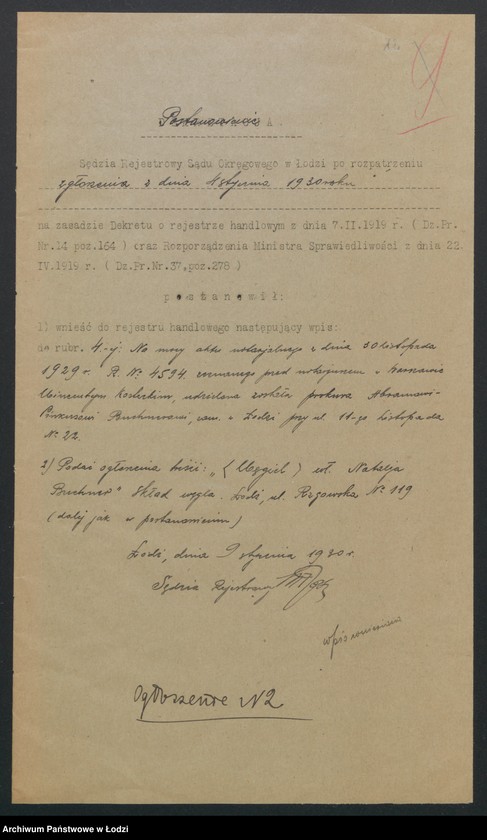 9
Postanowienie A.
Sędzia Rejestrowy Sądu Okręgowego w Łodzi po rozpatrzeniu
zgłoszenia z dnia 4 stycznia 1930 roku
na zasadzie Dekretu o rejestrze handlowym z dnia 7.II.1919 r. ( Dz.Pr.
Nr.14 poz.164 ) oraz Rozporządzenia Ministra Sprawiedliwości z dnia 22.
IV.1919 r. ( Dz.Pr.Nr.37,poz.278 )
p o s t a n o w i ł:
1) wnieść do rejestru handlowego następujący wpis:
do rubr. 4-ej: Na mocy aktu notarjalnego z dnia 30 listopada
1929 r. R. Nr 4594 zeznanego przed notarjuszem w Warszawie
Wincentym, udzielona została prokura Abramowi-
Pinkusowi Buchnerowi, zam. w Łodzi przy ul. 11-go Listopada
Nr 22.
2) Podać ogłoszenia treść: „ ( Węgiel ) wł. Natalja
Buchner" Skład węgla. Łódź, ul. Rzgowska Nr 119
(dalej jak w postanowieniu)
Łódź, dnia 9 stycznia 1930 r.
Sędzia Rejestrowy
Wpis
Ogłoszenie N2
Archiwum Państwowe w Łodzi